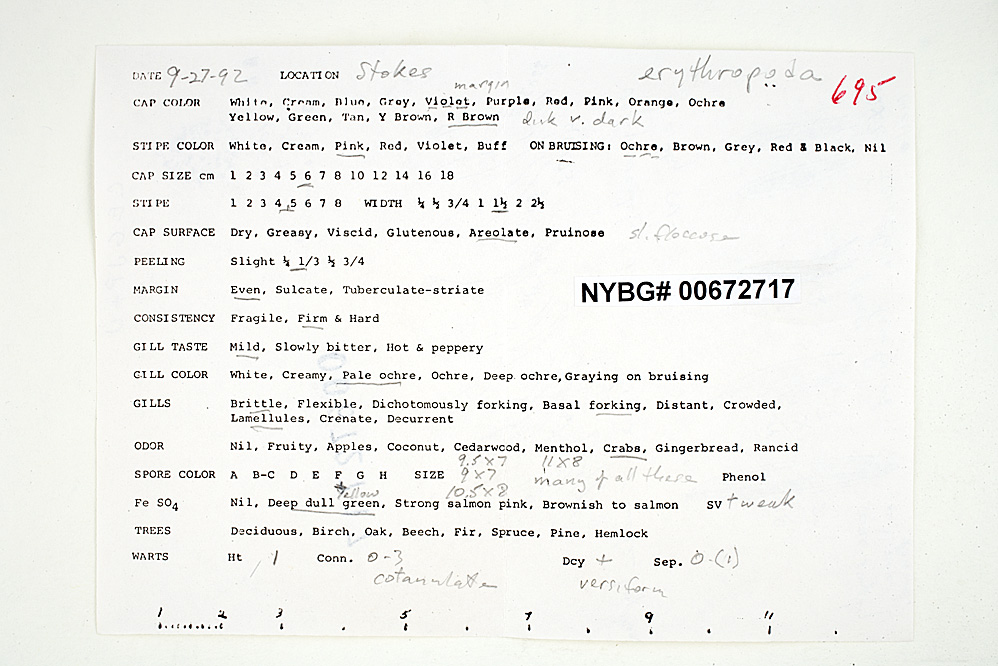 DATE 9-27-92 LOCATION Stokes erythropoda
695
margin
CAP COLOR White, Cream, Blue, Grey, Violet, Purple, Red, Pink, Orange, Ochre
Yellow, Green, Tan, Y Brown, R Brown disk v. dark
STIPE COLOR White, Cream, Pink, Red, Violet, Buff ON BRUISING: Ochre, Brown, Grey, Red & Black, Nil
CAP SIZE cm 1 2 3 4 5 6 7 8 10 12 14 16 18
STIPE 1 2 3 4 5 6 7 8 WIDTH ¼ ½ 3/4 1 1½ 2 2½
CAP SURFACE Dry, Greasy, Viscid, Glutenous, Areolate, Pruinose sl. floccose
PEELING Slight ¼ 1/3 ½ 3/4
MARGIN Even, Sulcate, Tuberculate-striate
NYBG# 00672717
CONSISTENCY Fragile, Firm & Hard
GILL TASTE Mild, Slowly bitter, Hot & peppery
GILL COLOR White, Creamy, Pale ochre, Ochre, Deep ochre, Graying on bruising
GILLS Brittle, Flexible, Dichotomously forking, Basal forking, Distant, Crowded,
Lamellules, Crenate, Decurrent
ODOR Nil, Fruity, Apples, Coconut, Cedarwood, Menthol, Crabs, Gingerbread, Rancid
9.5X7 11X8
SPORE COLOR A B-C D E F G H SIZE 9X7 many of all these Phenol
yellow 10.5X8
Fe SO4 Nil, Deep dull green, Strong salmon pink, Brownish to salmon SV + weak
TREES Deciduous, Birch, Oak, Beech, Fir, Spruce, Pine, Hemlock
WARTS Ht 1 Conn. 0-3 Dcy + Sep. 0-(1)
cotannulate versiform
1 2 3 5 7 9 11